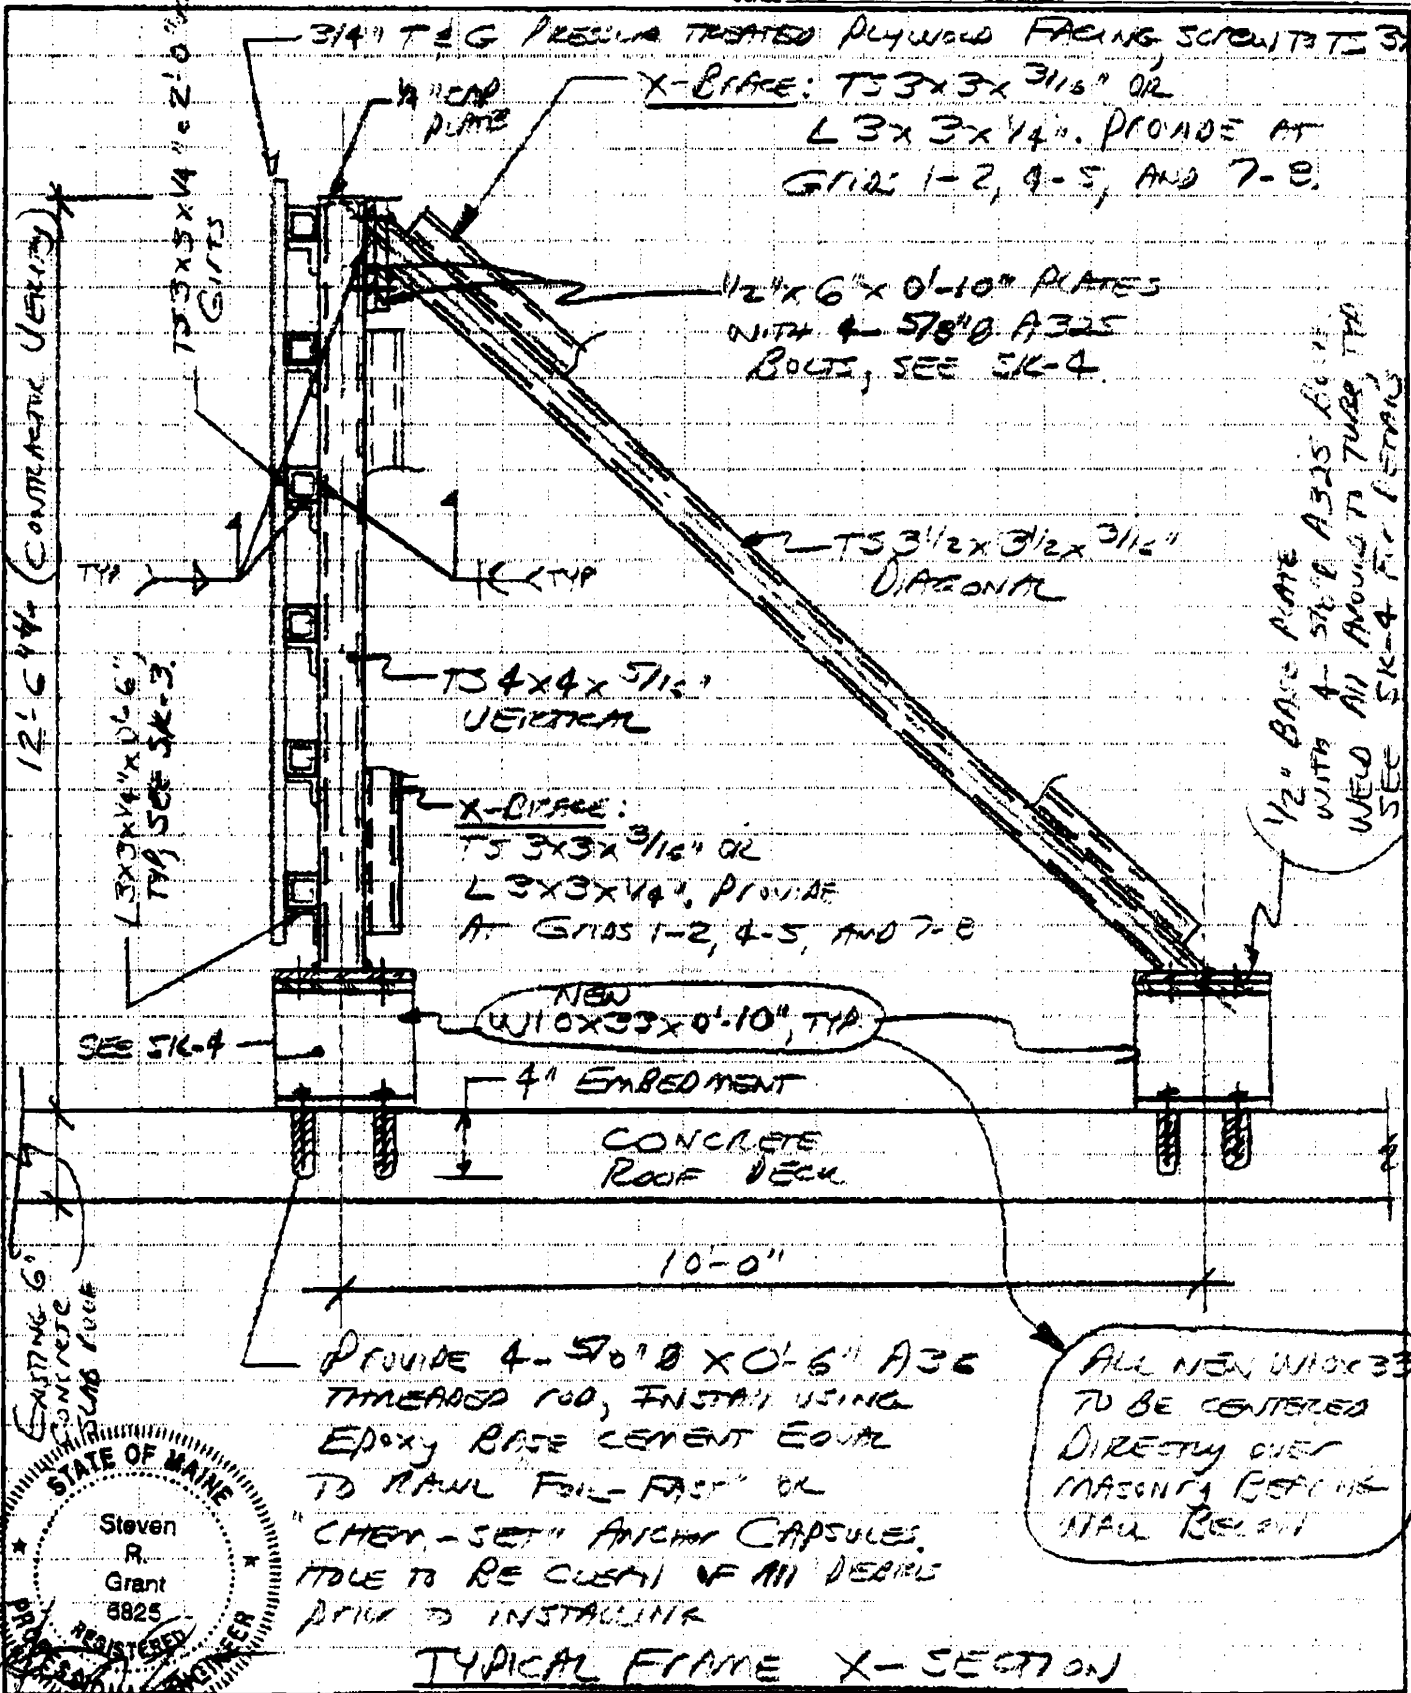 3/4" T & G PRESSURE TREATED PLYWOOD FACING, SCREW TO TS 3x
1/2" CAP
PLATE
X-BRACE: TS 3x3x 3/16" OR
L 3x3x1/4". PROVIDE AT
GRIDS 1-2, 4-5, AND 7-8.
TS 3x3x1/4" @ 2'-0"
GIRTS
1/2"x 6"x 0'-10" PLATES
WITH 4- 5/8"Ø A325
BOLTS, SEE SK-4.
(CONTRACTOR VERIFY)
TYP
TYP
TS 3 1/2 x 3 1/2 x 3/16"
DIAGONAL
1/2" BASE PLATE
WITH 4- 5/8"Ø A325 BOLTS
WELD ALL AROUND TO TUBE, TYP
SEE SK-4 FOR DETAILS
TS 4x4x 5/16"
VERTICAL
L3x3x1/4"x0'-6"
TYP, SEE SK-3.
X-BRACE:
TS 3x3x 3/16" OR
L 3x3x1/4", PROVIDE
AT GRIDS 1-2, 4-5, AND 7-8
NEW
W10x33x0'-10", TYP.
SEE SK-4
4" EMBEDMENT
CONCRETE
ROOF DECK
10'-0"
EXISTING 6"
CONCRETE
SLAB ROOF
PROVIDE 4- 5/8"Ø x 0'-6" A36
THREADED ROD, INSTALL USING
EPOXY BASE CEMENT EQUAL
TO RAWL FOIL-FAST" OR
"CHEM-SET" ANCHOR CAPSULES.
HOLE TO BE CLEAN OF ALL DEBRIS
PRIOR TO INSTALLING
ALL NEW W10x33
TO BE CENTERED
DIRECTLY OVER
MASONRY BEARING
WALL BELOW
STATE OF MAINE
Steven
R.
Grant
6825
REGISTERED
PROFESSIONAL ENGINEER
TYPICAL FRAME X-SECTION